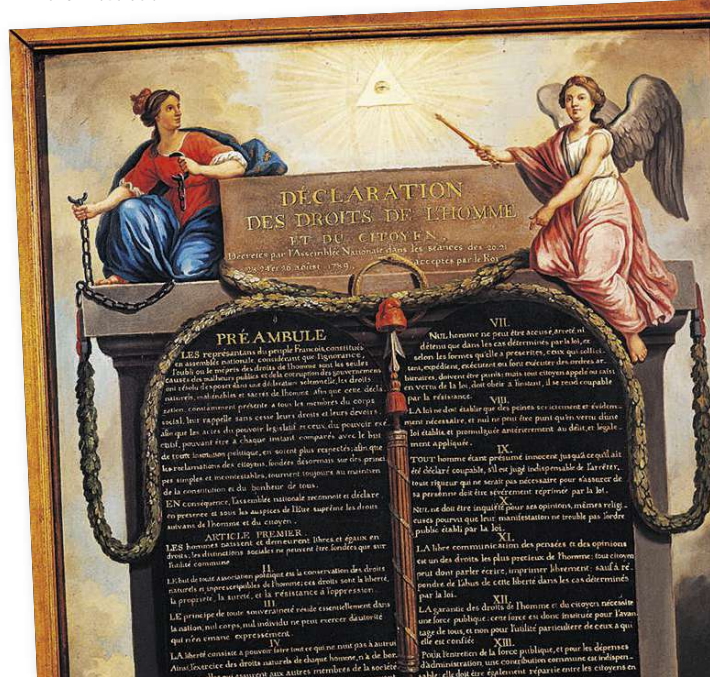 DÉCLARATION
DES DROITS DE L'HOMME
ET DU CITOYEN,
Décrétés par l'Assemblée Nationale dans les séances des 20.21
23.24 et 26 août 1789, acceptés par le Roi
PRÉAMBULE
LES représentans du peuple François, constitués
en assemblée nationale, considérant que l'ignorance,
l'oubli ou le mépris des droits de l'homme sont les seules
causes des malheurs publics et de la corruption des gouvernemens
ont résolu d'exposer dans une déclaration solemnelle, les droits
naturels, inaliénables et sacrés de l'homme, afin que cette décla
ration, constamment présente a tous les membres du corps
social, leur rappelle sans cesse leurs droits et leurs devoirs,
afin que les actes du pouvoir législatif et ceux du pouvoir exé
cutif, pouvant être a chaque instant comparés avec le but
de toute institution politique, en soient plus respectés; afin que
les réclamations des citoyens, fondées désormais sur des princi
pes simples et incontestables, tournent toujours au maintien
de la constitution et du bonheur de tous.
EN conséquence, l'assemblée nationale reconnoit et déclare
en presence et sous les auspices de l'Etre suprême les droits
suivans de l'homme et du citoyen.
ARTICLE PREMIER.
LES hommes naissent et demeurent libres et égaux en
droits. les distinctions sociales ne peuvent être fondées que sur
l'utilité commune
II.
LE but de toute association politique est la conservation des droits
naturels et inprescriptibles de l'homme; ces droits sont la liberté,
la propriété, la sureté, et la résistance à l'oppression.
III.
LE principe de toute souveraineté réside essentiellement dans
la nation, nul corps, nul individu ne peut exercer d'autorité
qui n'en emane expressément.
IV
LA liberté consiste a pouvoir faire tout ce qui ne nuit pas à autrui
Ainsi, l'exercice des droits naturels de chaque homme, n'a de bor
celles qui assurent aux autres membres de la société
VII.
NUL homme ne peut être accusé, arreté, ni
détenu que dans les cas déterminés par la loi, et
selon les formes qu'elle a prescrites, ceux qui sollici
tent, expédient, exécutent ou font exécuter des ordres ar
bitraires, doivent être punis; mais tout citoyen appelé ou saisi
en vertu de la loi, doit obéir a l'instant, il se rend coupable
par la résistance.
VIII.
LA loi ne doit établir que des peines strictement et évidem
ment nécessaire, et nul ne peut être puni qu'en vertu d'une
loi établie et promulguée antérieurement au délit, et légale
ment appliquée.
IX.
TOUT homme étant présumé innocent jusqu'à ce qu'il ait
été déclaré coupable, s'il est jugé indispensable de l'arrêter,
toute rigueur qui ne serait pas nécessaire pour s'assurer de
sa personne doit être sévèrement réprimée par la loi.
X.
NUL ne doit être inquiété pour ses opinions, mêmes religi
euses pourvu que leur manifestation ne trouble pas l'ordre
public établi par la loi.
XI.
LA libre communication des pensées et des opinions
est un des droits les plus precieux de l'homme; tout citoyen
peut dont parler écrire, imprimer librement; sauf à ré
pondre de l'abus de cette liberté dans les cas déterminés
par la loi.
XII.
LA garantie des droits de l'homme et du citoyen nécessite
une force publique; cette force est donc instituée pour l'avan
tage de tous, et non pour l'utilité particuliere de ceux a qui
elle est confiée
XIII.
POUR l'entretien de la force publique, et pour les dépenses
d'administration, une contribution commune est indispen
sable; elle doit être également répartie entre les citoyens en